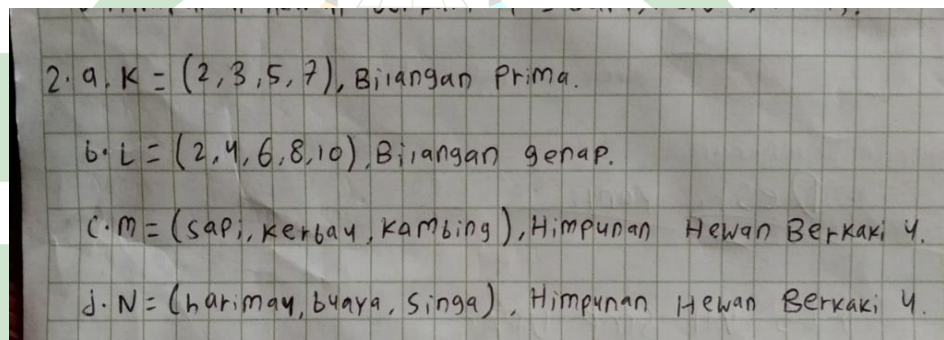 2. a. K = (2, 3, 5, 7), Bilangan Prima.
b. L = (2, 4, 6, 8, 10), Bilangan genap.
c. M = (sapi, kerbau, kambing), Himpunan Hewan Berkaki 4.
d. N = (harimau, buaya, singa), Himpunan Hewan Berkaki 4.